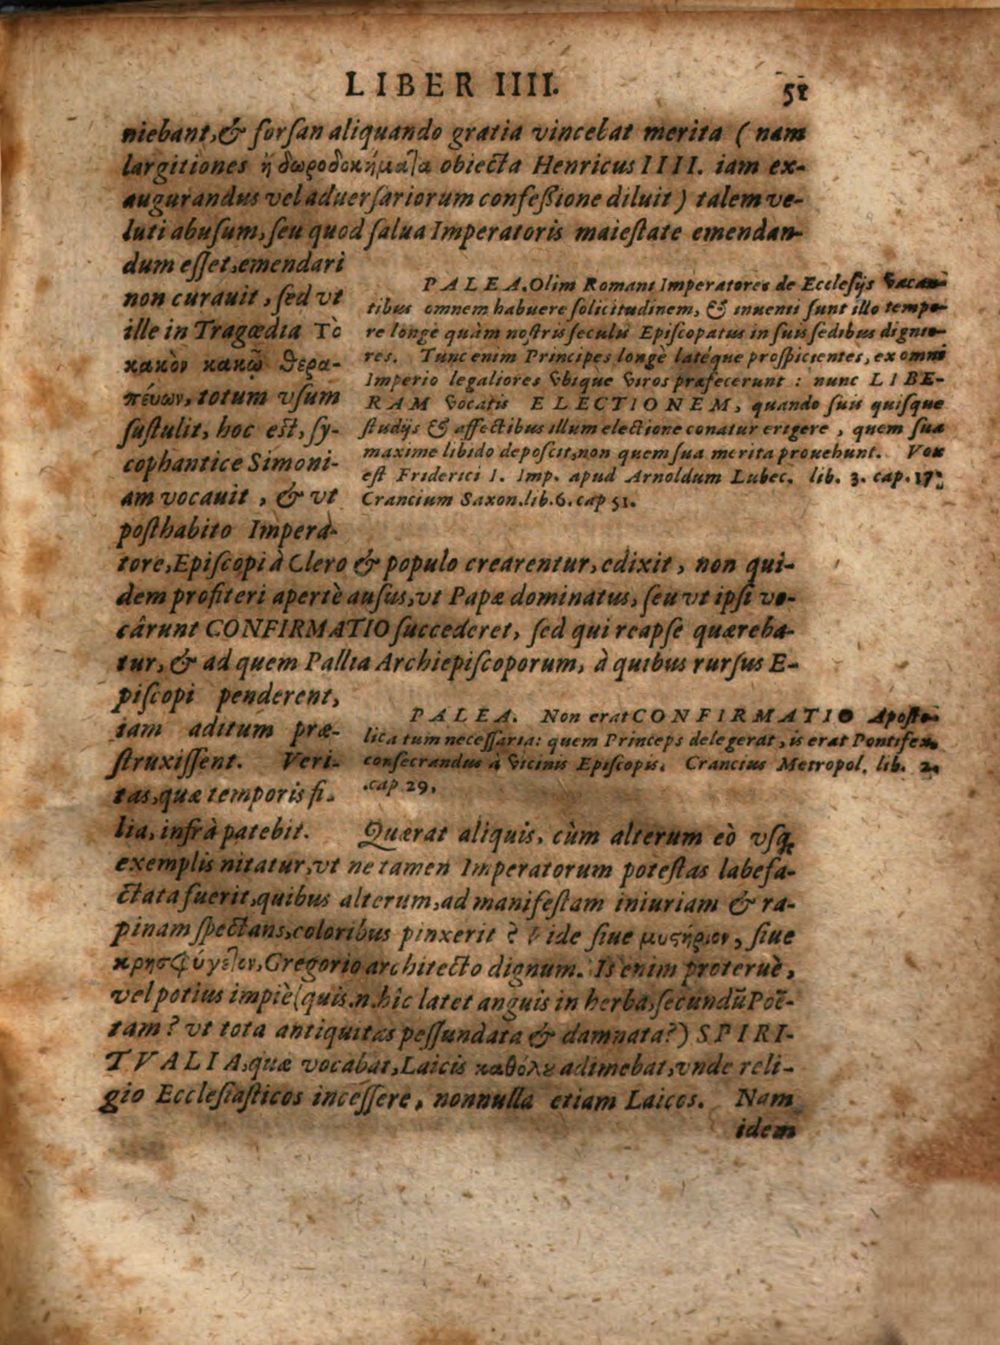 LIBER IIII. 51
niebant, & forſan aliquando gratia vincebat merita ( nam
largitiones ἢ δωροδοκήματα obiecta Henricus IIII. iam ex-
augurandus vel aduerſariorum confeſsione diluit ) talem ve-
luti abuſum, ſeu quod ſalua Imperatoris maieſtate emendan-
dum eſſet, emendari
non curauit, ſed vt
ille in Tragœdia Τὸ
κακὸν κακῷ θερα-
πέυων, totum vſum
ſuſtulit, hoc eſt, ſy-
cophantice Simoni-
am vocauit, & vt
poſthabito Impera-
PALEA. Olim Romani Imperatores de Ecclesijs vacan-
tibus omnem habuere ſolicitudinem, & inuenti ſunt illo tempo-
re longè quàm noſtris ſeculis Epiſcopatus in ſuis ſedibus dignio-
res. Tunc enim Principes longè latéque proſpicientes, ex omni
Imperio legaliores vbique viros præfecerunt : nunc LIBE-
RAM vocatis ELECTIONEM, quando ſuis quiſque
ſtudijs & affectibus illum electione conatur erigere, quem ſua
maxime libido depoſcit, non quem ſua merita prouehunt. Vox
eſt Friderici I. Imp. apud Arnoldum Lubec. lib. 3. cap. 17.
Crancium Saxon. lib. 6. cap 51.
tore, Epiſcopi à Clero & populo crearentur, edixit, non qui-
dem profiteri apertè auſus, vt Papæ dominatus, ſeu vt ipſi vo-
cârunt CONFIRMATIO ſuccederet, ſed qui reapſe quæreba-
tur, & ad quem Pallia Archiepiſcoporum, à quibus rurſus E-
piſcopi penderent,
iam aditum præ-
ſtruxiſſent. Veri-
tas, quæ temporis fi-
PALEA. Non erat CONFIRMATIO Apoſto-
lica tum neceſſaria: quem Princeps delegerat, is erat Pontifex,
conſecrandus à vicinis Epiſcopis. Crancius Metropol. lib. 2.
cap 29.
lia, infrà patebit. Quærat aliquis, cùm alterum eò vſq;
exemplis nitatur, vt ne tamen Imperatorum poteſtas labefa-
ctata fuerit, quibus alterum, ad manifeſtam iniuriam & ra-
pinam ſpectans, coloribus pinxerit ? Vide ſiue μυστήριον, ſiue
κρησφύγετον, Gregorio architecto dignum. Is enim proteruè,
vel potius impiè (quis .n. hic latet anguis in herba, ſecundũ Poë-
tam ? vt tota antiquitas peſſundata & damnata?) SPIRI-
TVALIA, quæ vocabat, Laicis καθόλȣ adimebat, vnde reli-
gio Eccleſiaſticos inceſſere, nonnulla etiam Laicos. Nam
idem